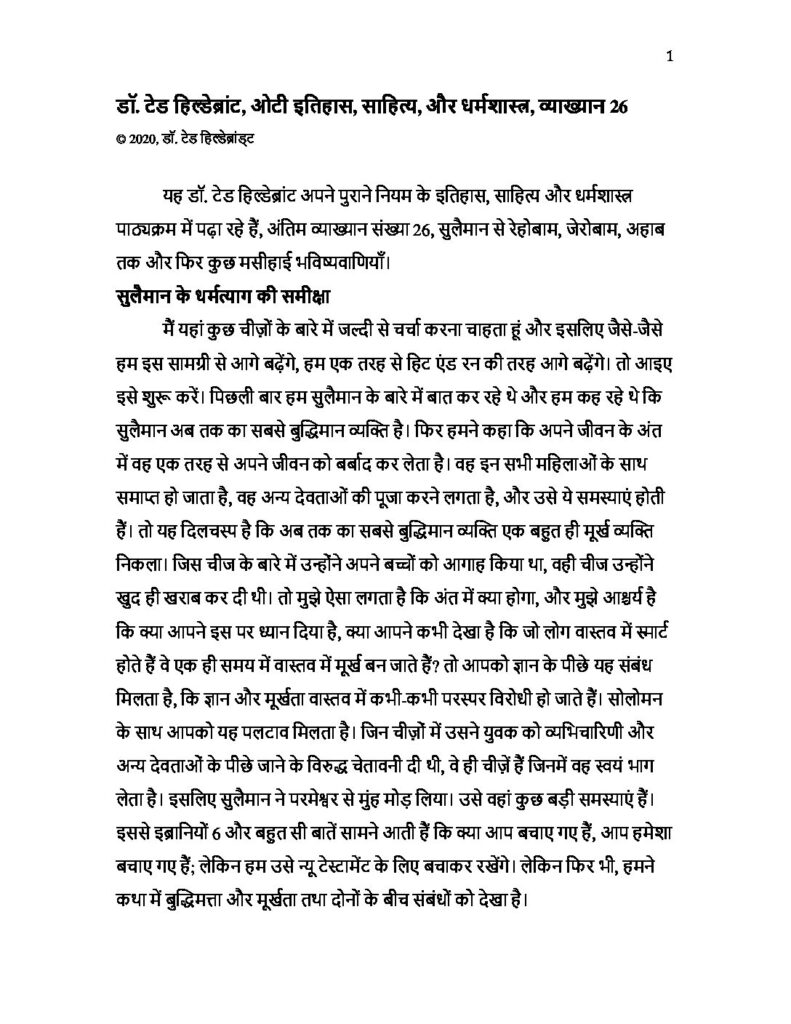 1
डॉ. टेड हिल्डेब्रांट, ओटी इतिहास, साहित्य, और धर्मशास्त्र, व्याख्यान 26
© 2020, डॉ. टेड हिल्डेब्रांड्ट
यह डॉ. टेड हिल्डेब्रांट अपने पुराने नियम के इतिहास, साहित्य और धर्मशास्त्र
पाठ्यक्रम में पढ़ा रहे हैं, अंतिम व्याख्यान संख्या 26, सुलैमान से रेहोबाम, जेरोबाम, अहाब
तक और फिर कुछ मसीहाई भविष्यवाणियाँ।
सुलैमान के धर्मत्याग की समीक्षा
मैं यहां कुछ चीज़ों के बारे में जल्दी से चर्चा करना चाहता हूं और इसलिए जैसे-जैसे
हम इस सामग्री से आगे बढ़ेंगे, हम एक तरह से हिट एंड रन की तरह आगे बढ़ेंगे। तो आइए
इसे शुरू करें। पिछली बार हम सुलैमान के बारे में बात कर रहे थे और हम कह रहे थे कि
सुलैमान अब तक का सबसे बुद्धिमान व्यक्ति है। फिर हमने कहा कि अपने जीवन के अंत
में वह एक तरह से अपने जीवन को बर्बाद कर लेता है। वह इन सभी महिलाओं के साथ
समाप्त हो जाता है, वह अन्य देवताओं की पूजा करने लगता है, और उसे ये समस्याएं होती
हैं। तो यह दिलचस्प है कि अब तक का सबसे बुद्धिमान व्यक्ति एक बहुत ही मूर्ख व्यक्ति
निकला। जिस चीज के बारे में उन्होंने अपने बच्चों को आगाह किया था, वही चीज उन्होंने
खुद ही खराब कर दी थी। तो मुझे ऐसा लगता है कि अंत में क्या होगा, और मुझे आश्चर्य है
कि क्या आपने इस पर ध्यान दिया है, क्या आपने कभी देखा है कि जो लोग वास्तव में स्मार्ट
होते हैं वे एक ही समय में वास्तव में मूर्ख बन जाते हैं? तो आपको ज्ञान के पीछे यह संबंध
मिलता है, कि ज्ञान और मूर्खता वास्तव में कभी-कभी परस्पर विरोधी हो जाते हैं। सोलोमन
के साथ आपको यह पलटाव मिलता है। जिन चीज़ों में उसने युवक को व्यभिचारिणी और
अन्य देवताओं के पीछे जाने के विरुद्ध चेतावनी दी थी, वे ही चीज़ें हैं जिनमें वह स्वयं भाग
लेता है। इसलिए सुलैमान ने परमेश्वर से मुंह मोड़ लिया। उसे वहां कुछ बड़ी समस्याएं हैं।
इससे इब्रानियों 6 और बहुत सी बातें सामने आती हैं कि क्या आप बचाए गए हैं, आप हमेशा
बचाए गए हैं; लेकिन हम उसे न्यू टेस्टामेंट के लिए बचाकर रखेंगे। लेकिन फिर भी, हमने
कथा में बुद्धिमत्ता और मूर्खता तथा दोनों के बीच संबंधों को देखा है।